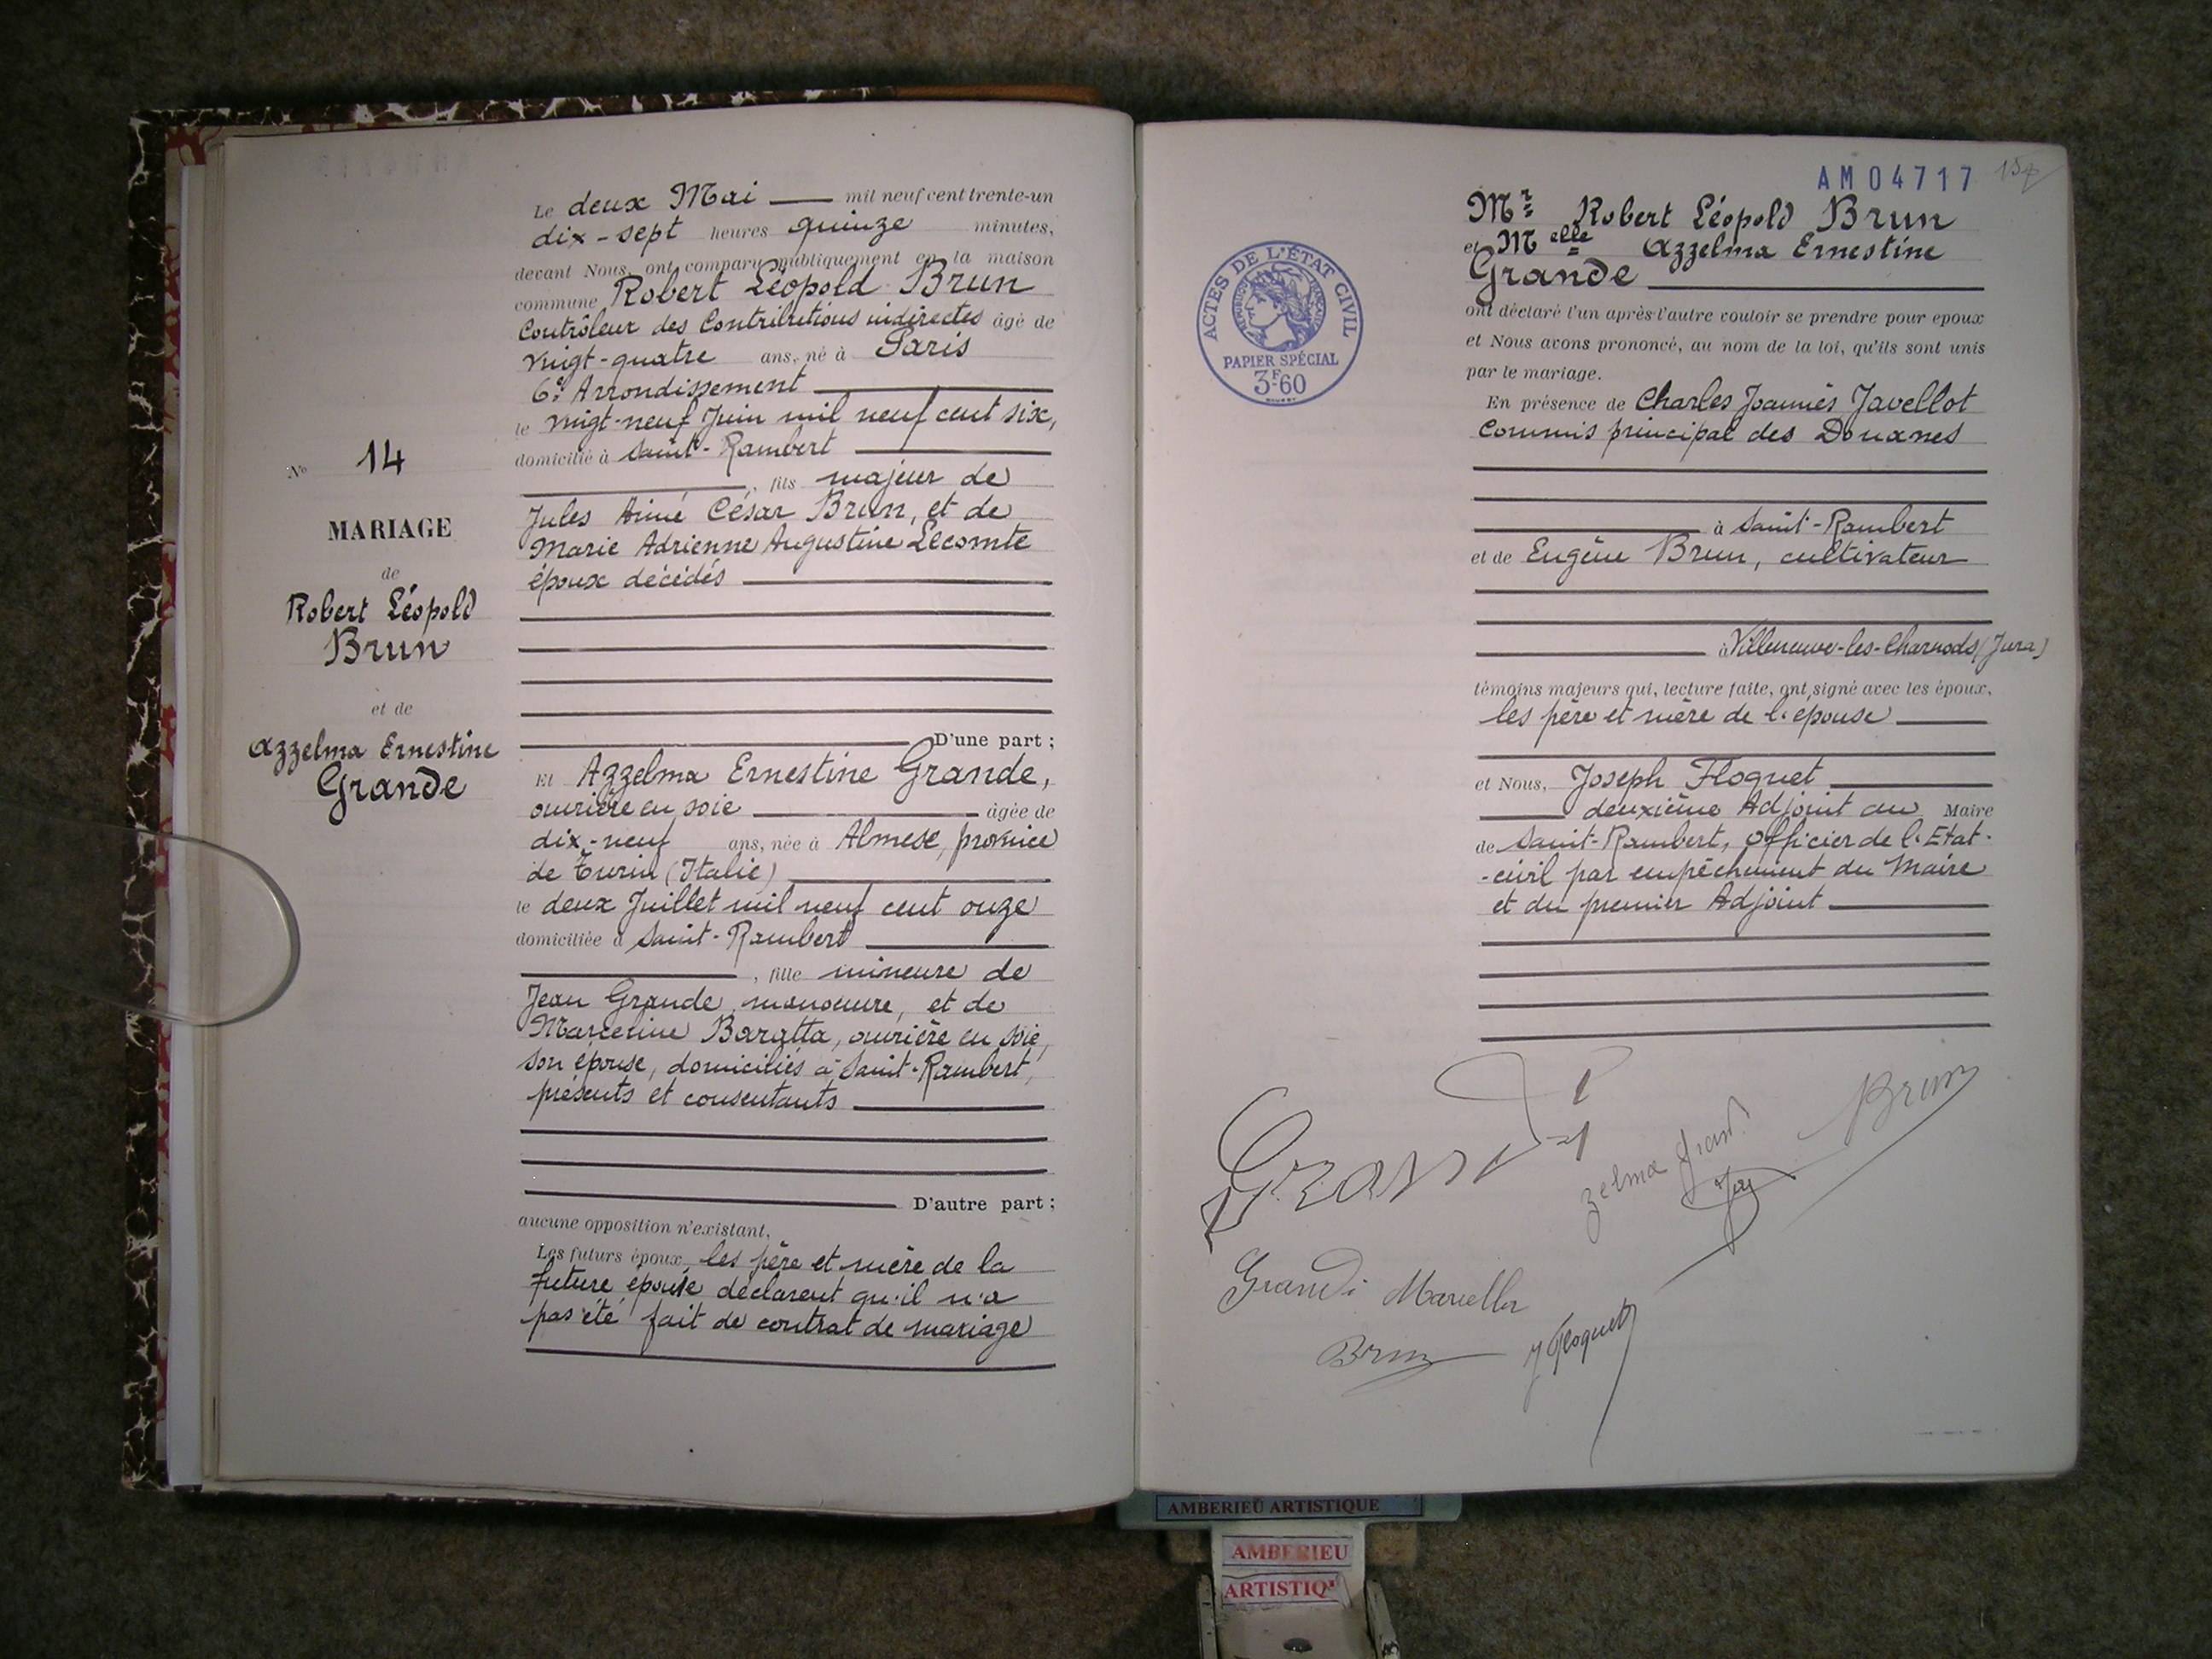 N° 14
MARIAGE
de
Robert Léopold
Brun
et de
Azzelma Ernestine
Grande
Le deux Mai mil neuf cent trente-un
dix-sept heures quinze minutes,
devant Nous, ont comparu publiquement en la maison
commune Robert Léopold Brun
Contrôleur des Contributions indirectes âgé de
vingt-quatre ans, né à Paris
6e Arrondissement
le vingt-neuf Juin mil neuf cent six,
domicilié à Saint-Rambert
, fils majeur de
Jules Aimé César Brun, et de
Marie Adrienne Augustine Lecomte
époux décédés
D'une part ;
Et Azzelma Ernestine Grande,
ouvrière en soie âgée de
dix-neuf ans, née à Almese, province
de Turin (Italie)
le deux Juillet mil neuf cent onze
domiciliée à Saint-Rambert
, fille mineure de
Jean Grande, manoeuvre, et de
Marceline Baratta, ouvrière en soie,
son épouse, domiciliés à Saint-Rambert,
présents et consentants
D'autre part ;
aucune opposition n'existant,
Les futurs époux, les père et mère de la
future épouse déclarent qu'il n'a
pas été fait de contrat de mariage
AM04717
ACTES DE L'ÉTAT CIVIL
RÉPUBLIQUE FRANÇAISE
PAPIER SPÉCIAL
3F.60
Mr Robert Léopold Brun
et Melle Azzelma Ernestine
Grande
ont déclaré l'un après l'autre vouloir se prendre pour époux
et Nous avons prononcé, au nom de la loi, qu'ils sont unis
par le mariage.
En présence de Charles Joannès Javellot
Commis principal des Douanes
à Saint-Rambert
et de Eugène Brun, cultivateur
à Villeneuve-les-Charnods (Jura)
témoins majeurs qui, lecture faite, ont signé avec les époux,
les père et mère de l'épouse
et Nous, Joseph Floquet
deuxième Adjoint au Maire
de Saint-Rambert, Officier de l'Etat-
-civil par empêchement du Maire
et du premier Adjoint
Brun
zelma
Grandi Marcella
Brun J Floquet
AMBERIEU ARTISTIQUE
AMBERIEU
ARTISTIQ